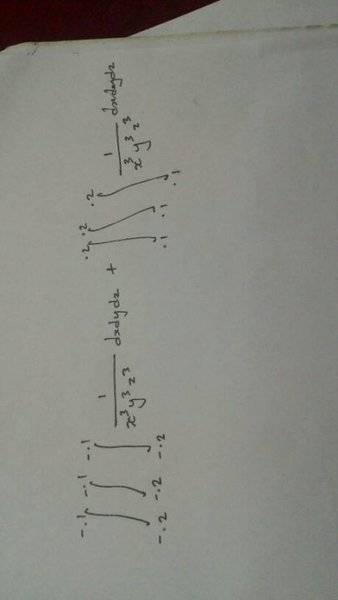 ∫_{-.2}^{-.1} ∫_{-.2}^{-.1} ∫_{-.2}^{-.1} 1/(x³y³z³) dxdydz + ∫_{.1}^{.2} ∫_{.1}^{.2} ∫_{.1}^{.2} 1/(x³y³z³) dxdydz